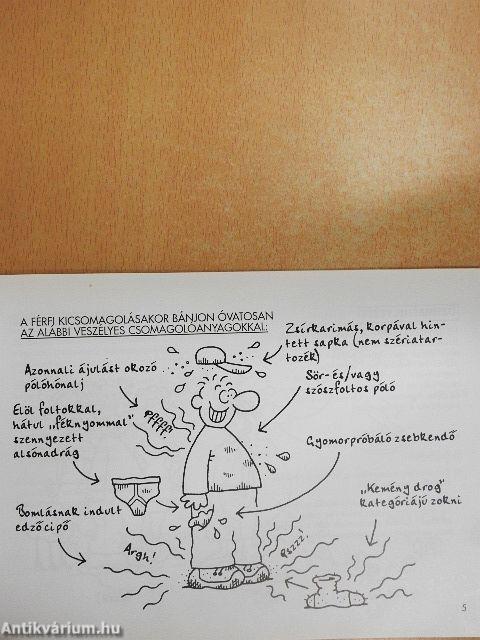 A FÉRFI KICSOMAGOLÁSAKOR BÁNJON ÓVATOSAN
AZ ALÁBBI VESZÉLYES CSOMAGOLÓANYAGOKKAL:
Zsírkarimás, korpával hin-
tett sapka (nem szériatar-
tozék)
Azonnali ájulást okozó
pólóhónalj
Sör- és/vagy
szószfoltos póló
Elöl foltokkal,
hátul „féknyommal"
szennyezett
alsónadrág
Pffffff!
Gyomorpróbáló zsebkendő
„Kemény drog"
kategóriájú zokni
Bomlásnak indult
edzőcipő
Argh!
Pszzz!
5
Antikvárium.hu